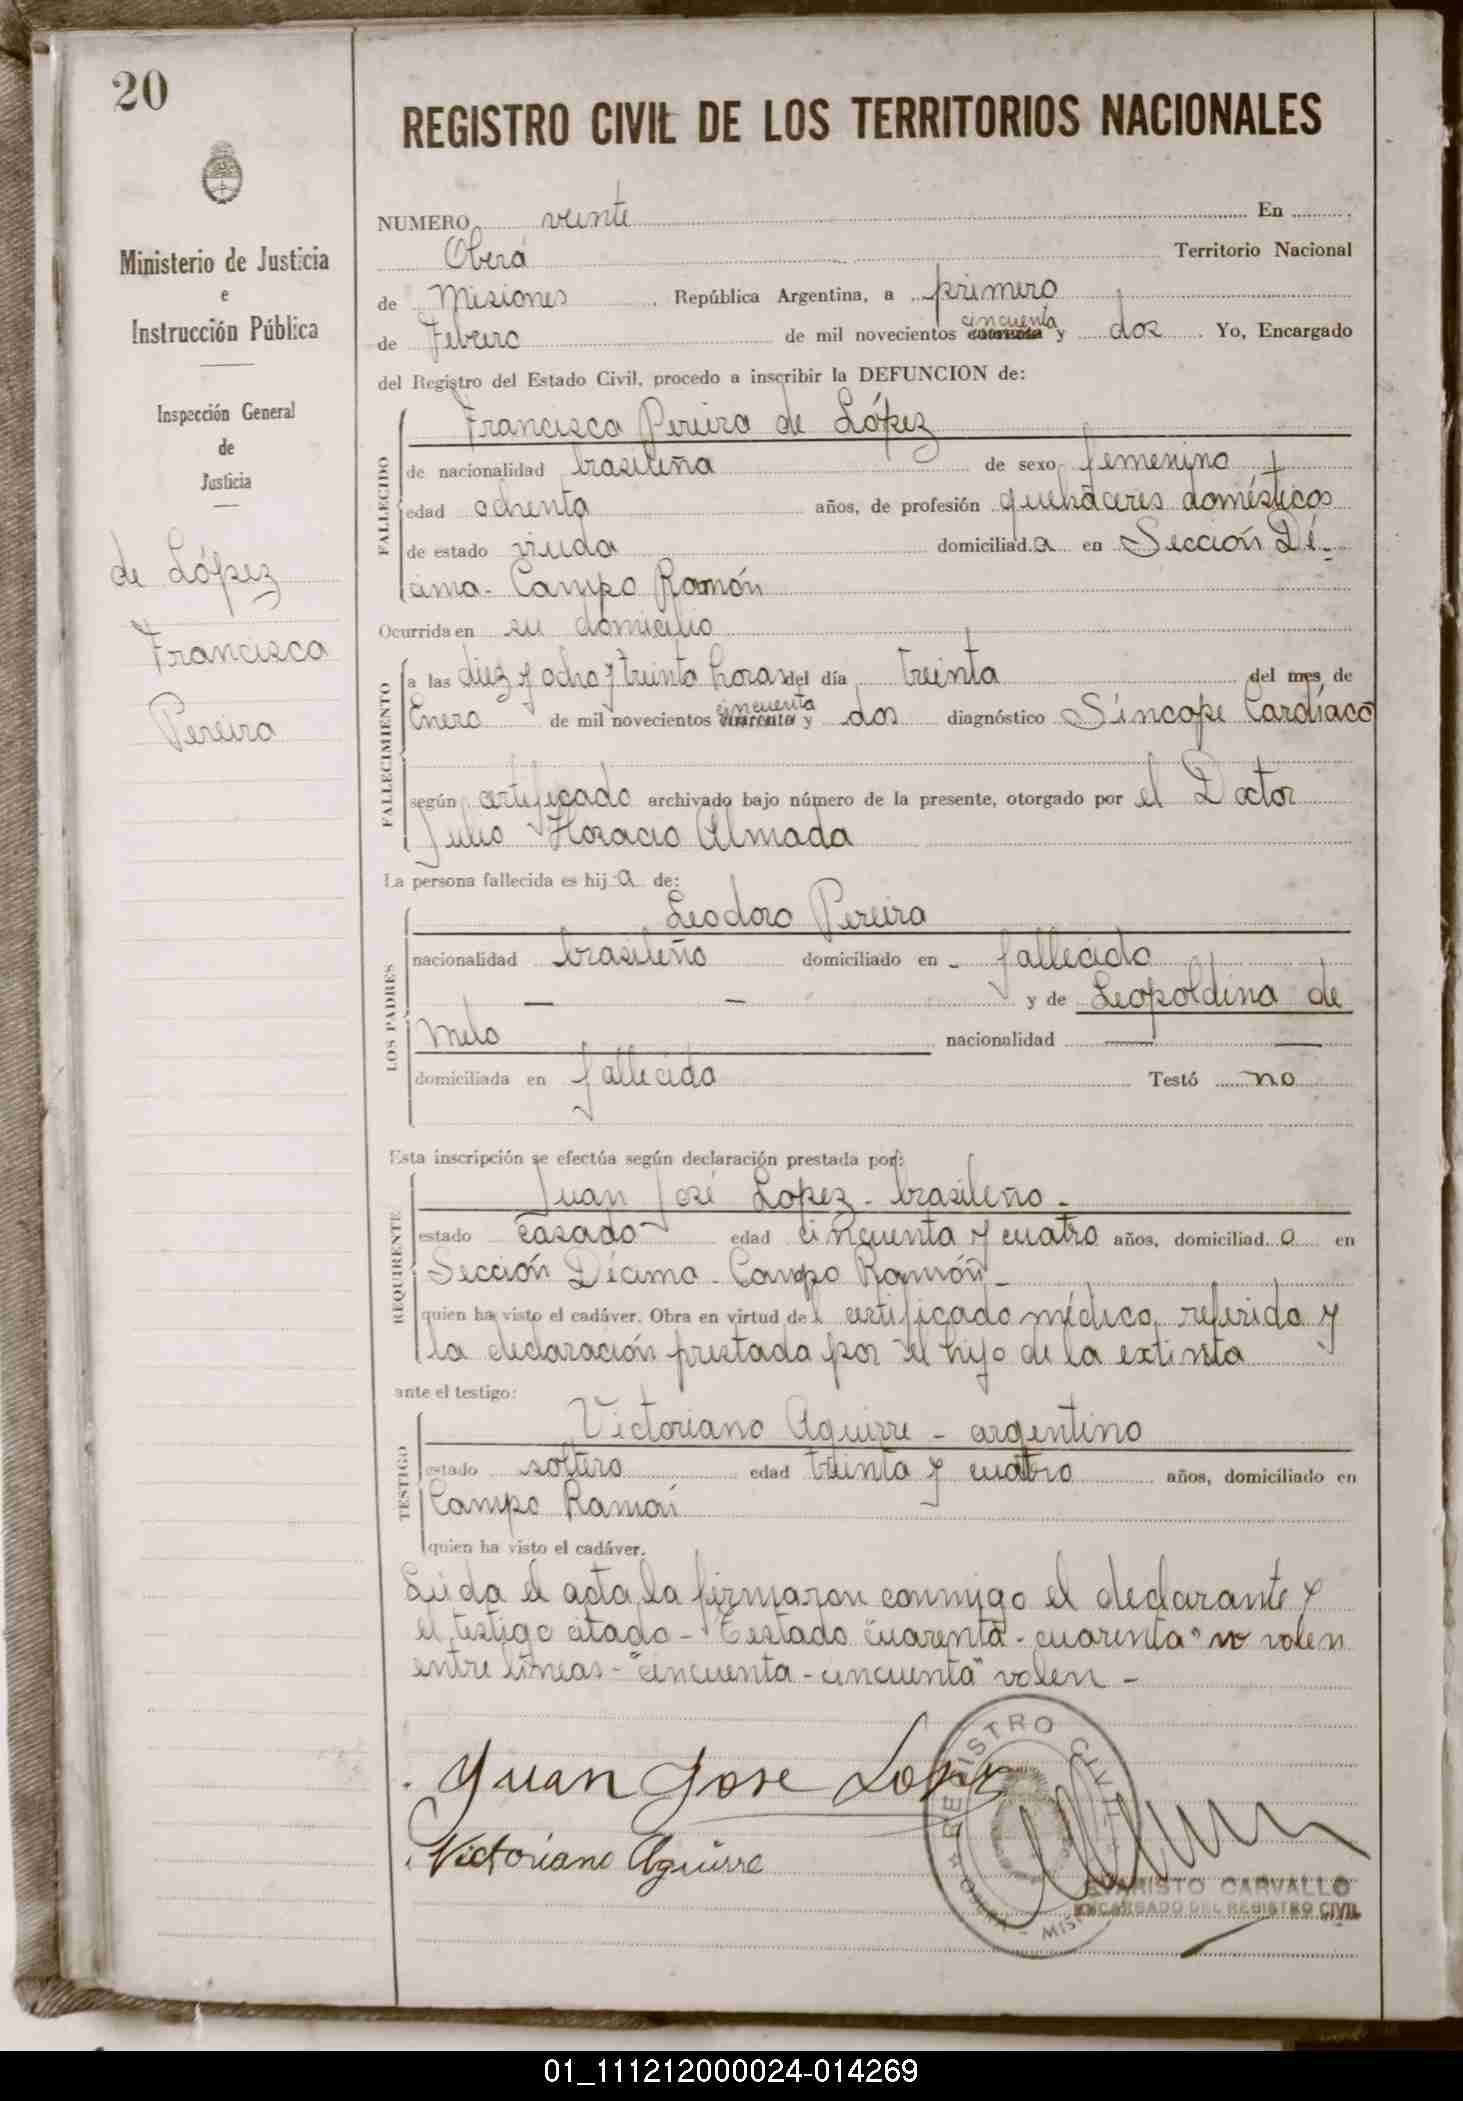 20
Ministerio de Justicia
e
Instrucción Pública
Inspección General
de
Justicia
de López
Francisca
Pereira
REGISTRO CIVIL DE LOS TERRITORIOS NACIONALES
NUMERO veinte En
Oberá Territorio Nacional
de Misiones República Argentina, a primero
de Febrero de mil novecientos cuarenta cincuenta y dos Yo, Encargado
del Registro del Estado Civil, procedo a inscribir la DEFUNCION de:
FALLECIDO
Francisca Pereira de López
de nacionalidad brasileña de sexo femenino
edad ochenta años, de profesión quehaceres domésticos
de estado viuda domiciliada en Sección Dé-
cima - Campo Ramón
Ocurrida en su domicilio
FALLECIMIENTO
a las diez y ocho y treinta horas del día treinta del mes de
Enero de mil novecientos cuarenta cincuenta y dos diagnóstico Síncope Cardíaco
según certificado archivado bajo número de la presente, otorgado por el Doctor
Julio Horacio Almada
La persona fallecida es hija de:
LOS PADRES
Leodoro Pereira
nacionalidad brasileño domiciliado en - fallecido
— — y de Leopoldina de
Melo nacionalidad — —
domiciliada en fallecida Testó no
Esta inscripción se efectúa según declaración prestada por:
REQUIRENTE
Juan José Lopez - brasileño -
estado casado edad cincuenta y cuatro años, domiciliado en
Sección Décima - Campo Ramón -
quien ha visto el cadáver. Obra en virtud del certificado médico referido y
la declaración prestada por el hijo de la extinta
ante el testigo:
TESTIGO
Victoriano Aguirre - argentino
estado soltero edad treinta y cuatro años, domiciliado en
Campo Ramón
quien ha visto el cadáver.
Leida el acta la firmaron conmigo el declarante y
el testigo citado - Testado "cuarenta - cuarenta" no valen
entre líneas - "cincuenta - cincuenta" valen -
Juan Jose Lopez
Victoriano Aguirre
REGISTRO CIVIL
EVARISTO CARVALLO
ENCARGADO DEL REGISTRO CIVIL
01_111212000024-014269